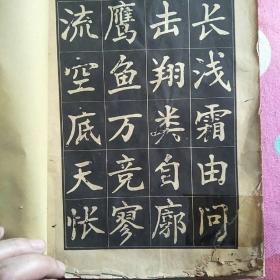 流鹰击长
空鱼翔浅
底万类霜
天竞自由
怅寥廓问